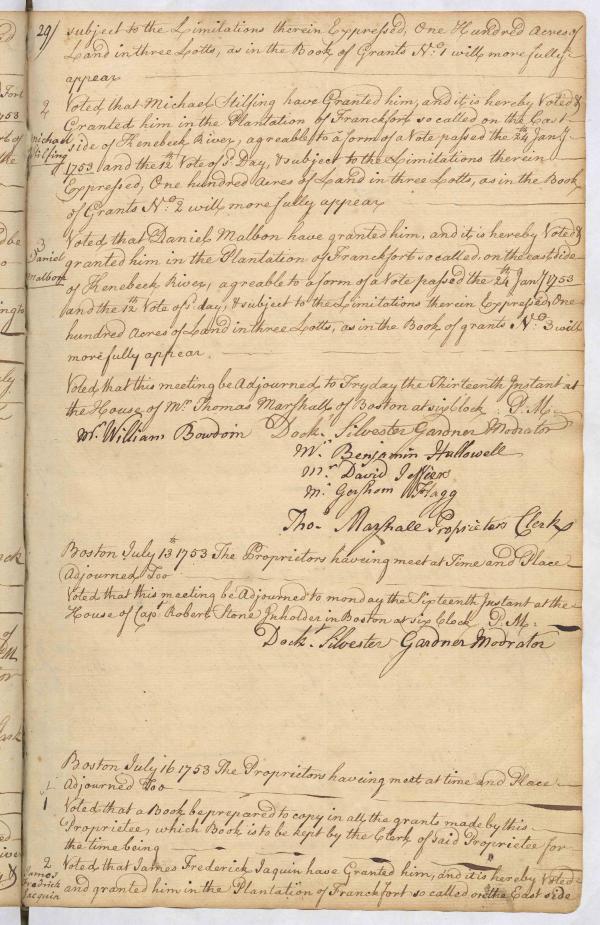 29/
subject to the Limitations therein Expressed, One Hundred Acres of
Land in three Lotts, as in the Book of Grants No. 1 will more fully
appear
2
Michael
Stilfing
Voted that Michael Stilfing have Granted him, and it is hereby Voted &
Granted him in the Plantation of Franckfort so called on the East
side of Kenebeck River, agreable to a form of a Vote passed the 24th Jany
1753 and the 12th Vote of sd. Day, & subject to the Limitations therein
Expressed, One hundred Acres of Land in three Lotts, as in the Book
of Grants No. 2 will more fully appear
3
Daniel
Malbon
Voted that Daniel Malbon have granted him, and it is hereby Voted &
granted him in the Plantation of Franckfort so called on the east side
of Kenebeck River, agreable to a form of a Vote passed the 24th Jany 1753
and the 12th Vote of sd. day, & subject to the Limitations therein Expressed, One
hundred Acres of Land in three Lotts, as in the Book of grants No. 3 will
more fully appear.
Voted that this meeting be Adjourned to Fryday the Thirteenth Instant at
the House of Mr. Thomas Marshall of Boston at six Clock P.M.
Mr. William Bowdoin Dockr. Silvester Gardner Modrator
Mr. Benjamin Hallowell
Mr. David Jeffiers
Mr. Gershom Flagg
Thos. Marshall Proprieters Clerk
Boston July 13th 1753 The Proprietors haveing meet at Time and Place
Adjourned Too
Voted that this meeting be Adjourned to monday the Sixteenth Instant at the
House of Capt. Robert Stone Inholder in Boston at six Clock P.M.
Dockr. Silvester Gardner Modrator
Boston July 16 1753 The Proprietors haveing meet at time and Place
Adjourned Too
1
Voted that a Book be prepared to copy in all the grants made by this
Proprietee, which Book is to be kept by the Clerk of said Proprietee for
the time being
2
James
Fredrick
Jaquin
Voted that James Frederick Jaquin have Granted him, and it is hereby Voted
and granted him in the Plantation of Franckfort so called on the East side